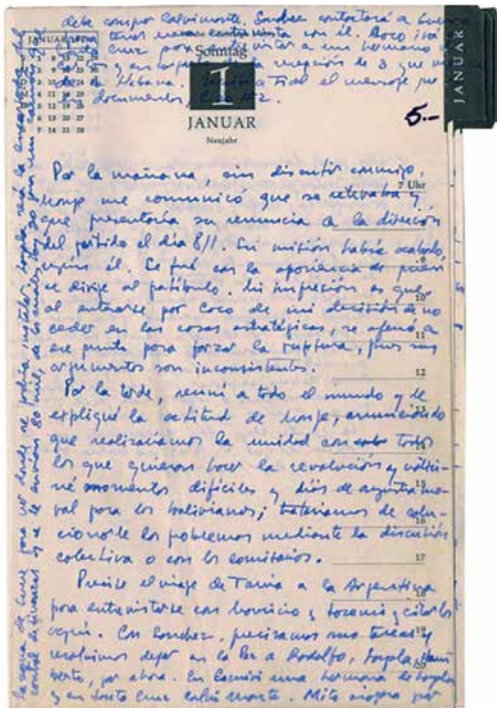 debe comprar Calvimonte. Sanchez contactará a Guevara
tener una entrevista con él. Coco irá a
Cruz para entrevistar a un hermano de
y encargarlo de la recepción de 3 que
de Habana. Escribí a Fidel el mensaje
documento #2.
JANUAR
Sonntag
1
JANUAR
Neujahr
JANUAR
5.-
7 Uhr
Por la mañana, sin discutir conmigo,
Monje me comunicó que se retiraba y
que presentaría su renuncia a la dirección
del partido el día 8/1. Su misión había acabado,
según él. Se fué con la apariencia de quien
9
se dirige al patíbulo. Mi impresión es que
10
al enterarse por Coco de mi decisión de no
ceder en las cosas estratégicas, se aferró a
11
ese punto para forzar la ruptura, pues sus
argumentos son inconsistentes.
12
Por la tarde, reuní a todo el mundo y le
expliqué la actitud de Monje, anunciando
que realizaríamos la unidad con todos
los que quieran hacer la revolución y vatici-
15
né momentos difíciles y días de angustia mo-
ral para los bolivianos; trataríamos de solu-
16
cionarle los problemas mediante la discusión
colectiva o con los comisarios.
17
Precisé el viaje de Tania a la Argentina
para entrevistarse con Mauricio y Jozami y citarlos
aquí. Con Sanchez, precisamos sus tareas y
19
resolvimos dejar en la Paz a Rodolfo, Loyola, Hum
berto, por ahora. En Camiri una hermana de Loyola
y en Santa Cruz Calvimonte. Mito viajará por
la zona de Sucre para ver donde se podría instalar. Loyola será la encargada del
control de finanzas y se le envían 80 mil, de los cuales hay 20 para un camión que